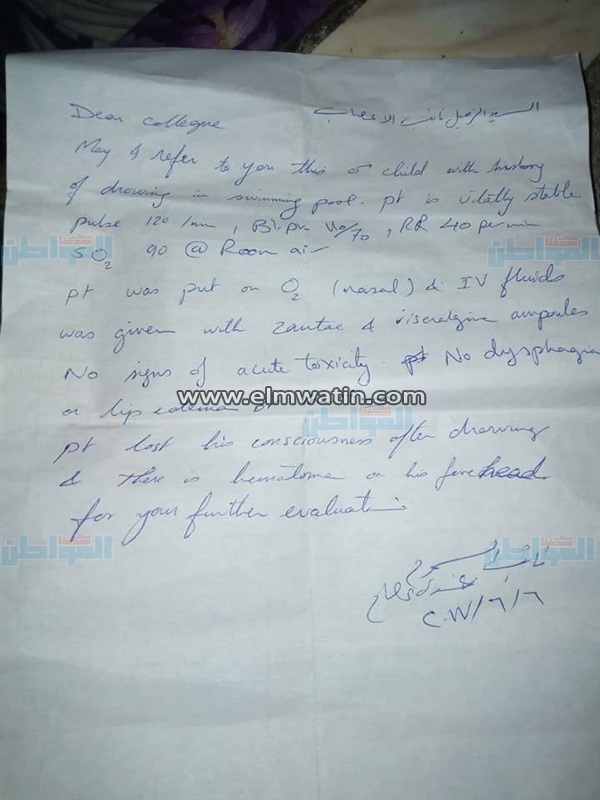 السيد الزميل نائب الاعصاب
Dear collegue
May I refer to you this ♂ child with history
of drowing in swimming pool. pt is vitally stable
pulse 120 /min, Bl.pr 110/70, RR 40 per min
SO2 90 @ Room air
pt was put on O2 (nasal) & IV fluids
was given with zantac & visceralgine ampoules
No signs of acute toxicity. pt No dysphagia
www.elmwatin.com
or lip edema
pt lost his consciousness after drowing
& there is hematoma on his forehead
for your further evaluation
نائب السموم
٢٠١٧/٦/٦
المواطن
المواطن
المواطن
المواطن
المواطن
المواطن